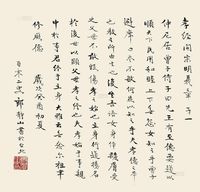 孝經開宗明義章第一
仲尼居曾子侍子曰先王有至德要道以
順天下民用和睦上下無怨汝知之乎曾子
避席曰參不敏何足以知之子曰夫孝德之本
也教之所由生也復坐吾語汝身體髮膚受
之父母不敢毀傷孝之始也立身行道揚名
於後世以顯父母孝之終也夫孝始於事親
中於事君終於立身大雅云無念爾祖聿
脩厥德
歲次癸酉初夏
百零二叟郎靜山書於台北